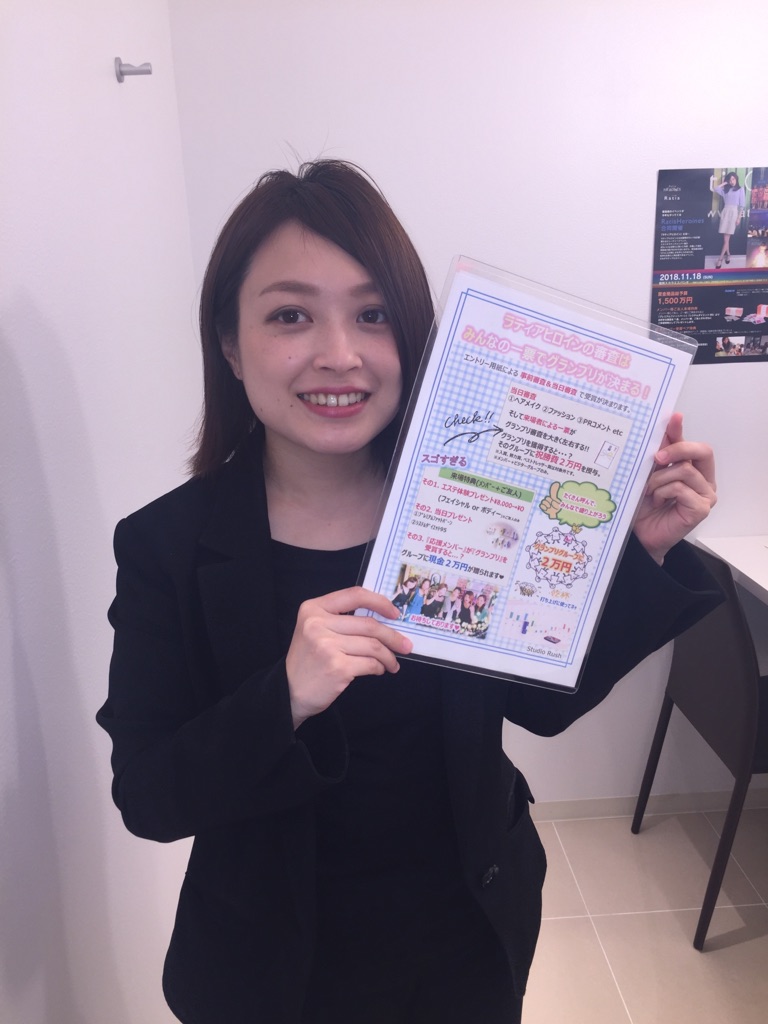 ラティアヒロインの審査は
みんなの一票でグランプリが決まる！
エントリー用紙による 事前審査&当日審査 で受賞が決まります。
当日審査
①ヘアメイク ②ファッション ③PRコメント etc
check!!
そして来場者による一票が
グランプリ審査を大きく左右する!!
グランプリを獲得すると・・・？
そのグループに祝勝費２万円を授与。
スゴすぎる
来場特典(ﾒﾝﾊﾞｰ+ご友人)
その1. エステ体験プレゼント¥8,000→¥0
(フェイシャル or ボディー)
その2. 当日プレゼント
その3.「応援メンバー」が「グランプリ」を
受賞すると…？
グループに現金２万円が贈られます♥
お待ちしております♥
たくさん呼んで
みんなで盛り上がろう
グランプリグループに
２万円
打ち上げに使って下さい
Studio Rush
Ratia
RatiaHeroines
2018.11.18
1,500万円